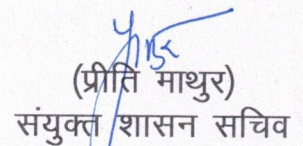 (प्रीति माथुर)
संयुक्त शासन सचिव